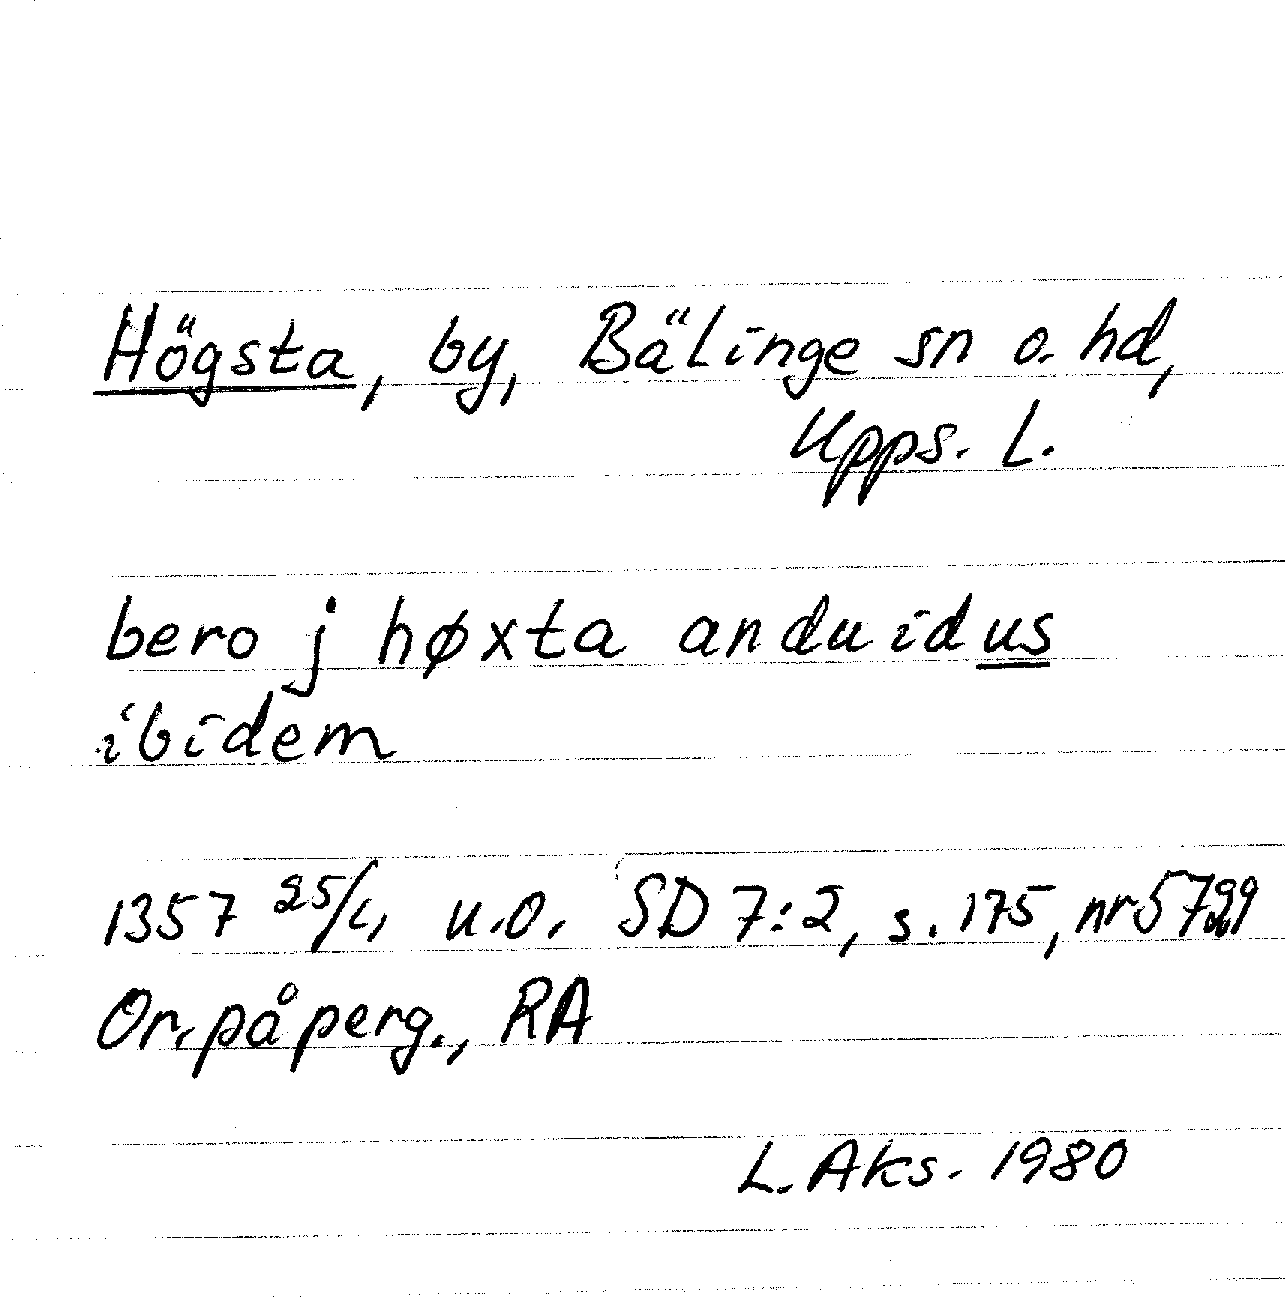 Högsta, by, Bälinge sn o. hd,
Upps. L.
bero j høxta anduidus
ibidem
1357 25/4 u.o. SD 7:2, s. 175, nr 5729
Or. på perg., RA
L. Aks. 1980